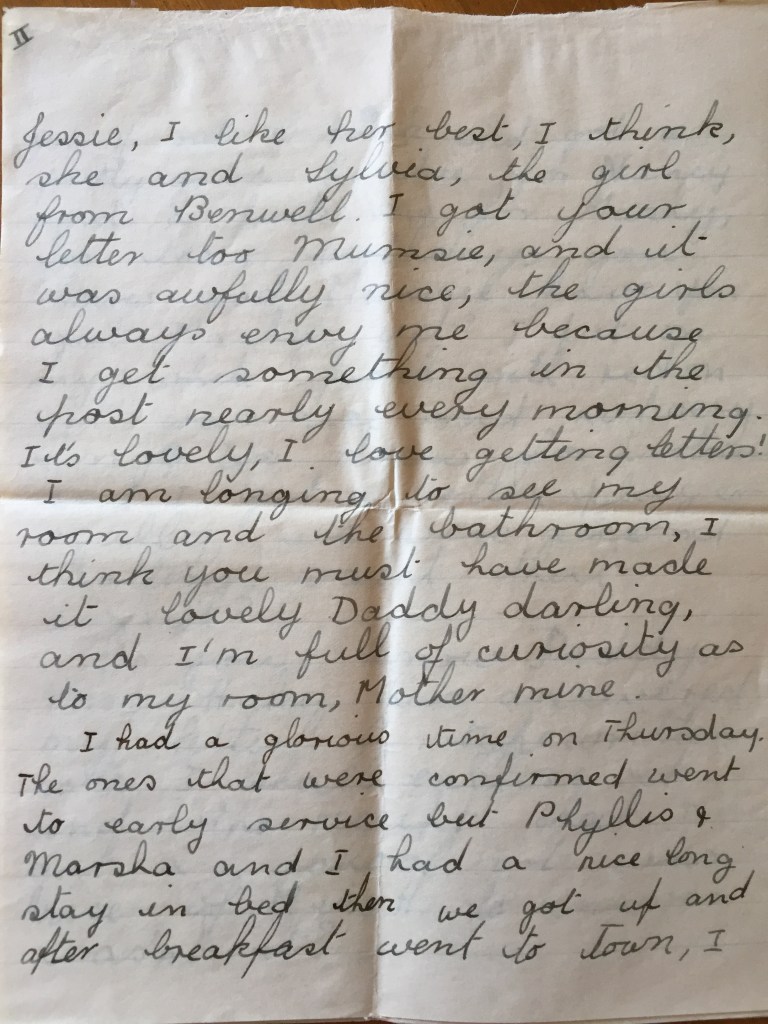 II
Jessie, I like her best, I think,
she and Sylvia, the girl
from Benwell. I got your
letter too Mumsie, and it
was awfully nice, the girls
always envy me because
I get something in the
post nearly every morning.
It's lovely, I love getting letters!
I am longing to see my
room and the bathroom, I
think you must have made
it lovely Daddy darling,
and I'm full of curiosity as
to my room, Mother mine.
I had a glorious time on Thursday.
The ones that were confirmed went
to early service but Phyllis &
Marsha and I had a nice long
stay in bed then we got up and
after breakfast went to Town, I